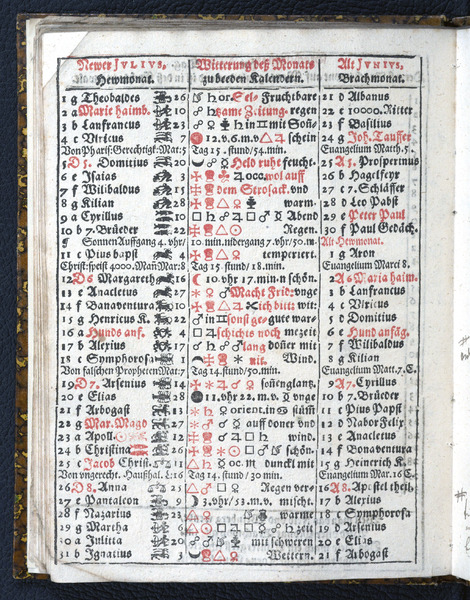 Newer JULIUS, Witterung deß Monats Alt JUNIUS,
Hewmonat. zu beeden Kalendern. Brachmonat.
1 g Theobaldes 26 or Sel- Fruchtbare 21 d Albanus
2 a Marie haimb. 10 same Zeitung. regen 22 e 10000. Ritter
3 b Lanfrancus 23 in mit Soñ- 23 f Basilius
4 c Vlricus 7 12.v.6.m. schein 24 g Joh. Tauffer
Von Pharis. Gerechtigk. Mat. 5 Tag 15. stund/54.min. Euangelium Matth. 5.
5 D5. Domitius 20 Held ruht feucht. 25 A5. Prosperinus
6 e Isaias 3 000. wol auff 26 b Hagelfeyr
7 f Wilibaldus 15 dem Strosack. vnd 27 c 7. Schläffer
8 g Kilian 28 warm. 28 d Leo Pabst
9 a Cyrillus 10 Abend 29 e Peter Paul
10 b 7. Brüeder 22 Regen. 30 f Paul Gedäch.
Sonnen Auffgang 4. vhr/ 10. min. nidergang 7. vhr/50. m. Alt Hewmonat.
11 c Pius bapst 4 temperiert. 1 g Aron
Christ. speist 4000. Mañ Mar: 8 Tag 15. stund/18. min. Euangelium Marci 8.
12 D6 Margareth 16 10. vhr 17. min. n schön. 2 A6 Maria haim.
13 e Anacletus 27 Macht Frid. vnge 3 b Lanfrancus
14 f Bonaventura 10 ich bitt weit: 4 c Vlricus
15 g Henricus K. 22 in sonst ges- gute war- 5 d Domitius
16 a Hunds anf. 4 schicht es noch mezeit 6 e Hund anfäg.
17 b Alexius 17 lang doñer mit 7 f Wilibaldus
18 c Symphorosa 1 nit. Wind. 8 g Kilian
Von falschen Propheten Mat: 7 Tag 14. stund/50. min. Euangelium Matt. 7. C.
19 D7. Arsenius 14 soñenglantz. 9 A7. Cyrillus
20 e Elias 28 11. vhr 22. m. v vnge 10 b 7. Brüder
21 f Arbogast 13 orient. in stüm 11 c Pius Papst
22 g Mar. Magd 27 auff doner vnd 12 d Nabor Felix
23 a Apoll. 12 wind. 13 e Anacletus
24 b Christina 26 schön. 14 f Bonaventura
25 c Jacob Christ. 11 oc. m dunckl mit 15 g Heinerich K.
Von vngerecht. Haußhal. L: 16 Tag 14. stund/30 min. Euangelium Mar. 16 C.
26 D8. Anna 25 Regen ver- 16 A8. Apostel theil.
27 c Pantaleon 9 3. vhr/53. m. v. mischt. 17 b Alexius
28 f Nazarius 23 warme 18 c Symphorosa
29 g Martha 6 zeit 19 d Arsenius
30 a Julitta 20 mit schweren 20 e Elias
31 b Ignatius 3 Wettern. 21 f Arbogast